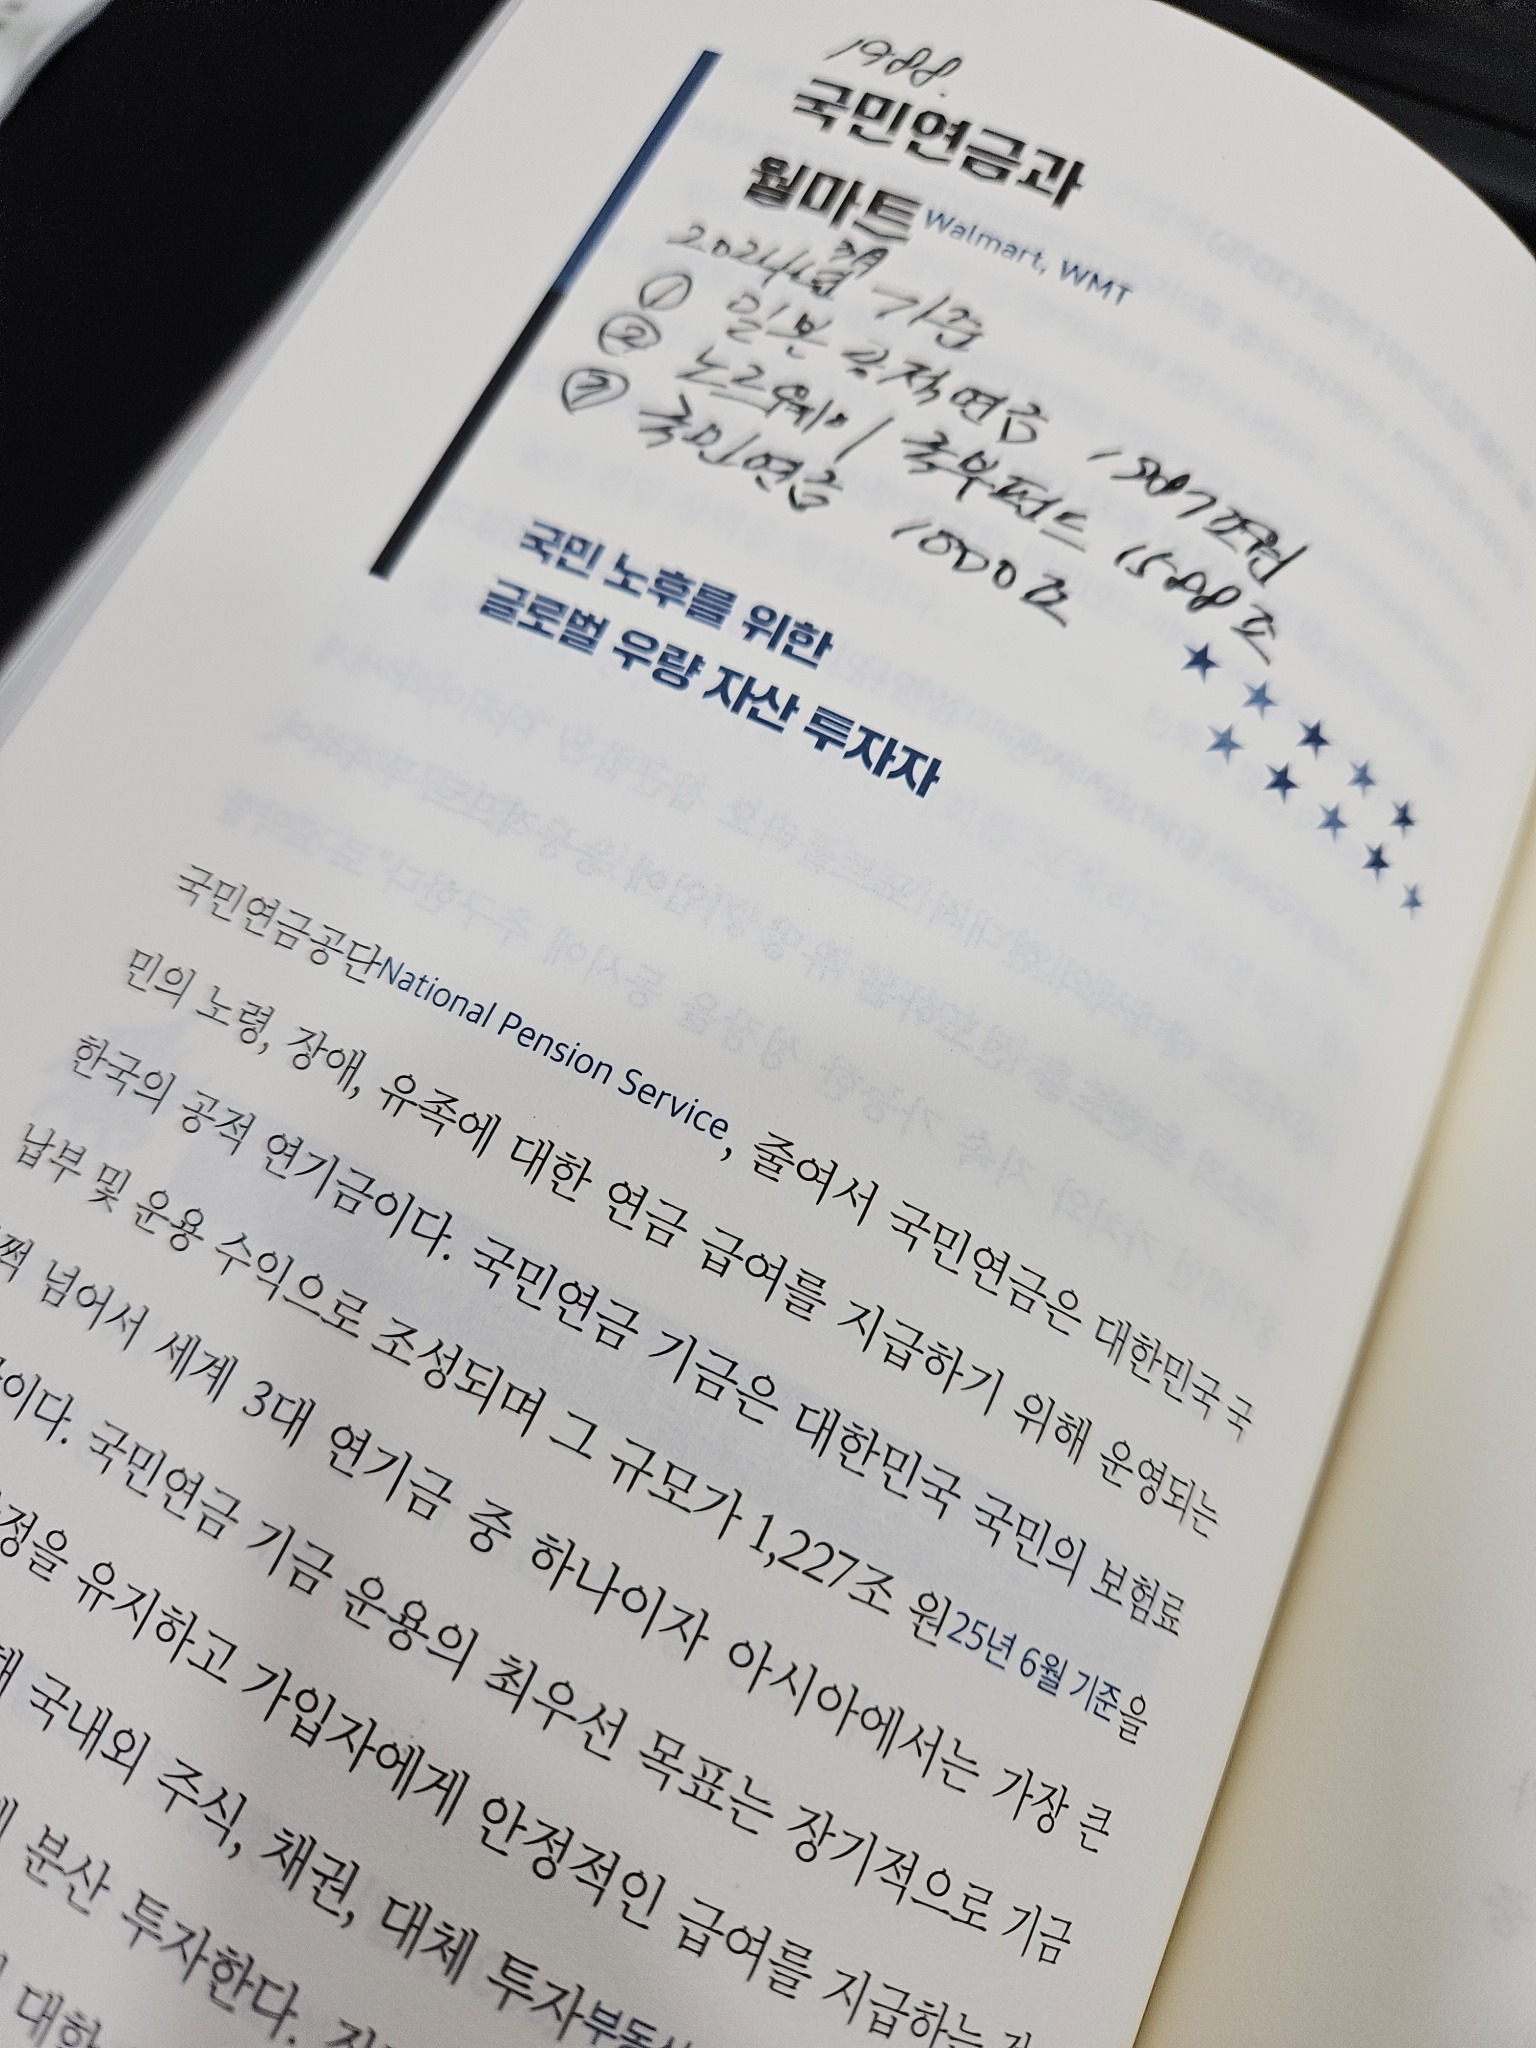 1988.
국민연금과
월마트 Walmart, WMT
2024년 3月 기준
① 일본 공적연금 1987조원
② 노르웨이 국부펀드 1588조
③ 국민연금 1000조
국민 노후를 위한
글로벌 우량 자산 투자자
국민연금공단National Pension Service, 줄여서 국민연금은 대한민국 국
민의 노령, 장애, 유족에 대한 연금 급여를 지급하기 위해 운영되는
한국의 공적 연기금이다. 국민연금 기금은 대한민국 국민의 보험료
납부 및 운용 수익으로 조성되며 그 규모가 1,227조 원25년 6월 기준을
쩍 넘어서 세계 3대 연기금 중 하나이자 아시아에서는 가장 큰
이다. 국민연금 기금 운용의 최우선 목표는 장기적으로 기금
정을 유지하고 가입자에게 안정적인 급여를 지급하는
해 국내외 주식, 채권, 대체 투자부동
분산 투자한다.
대한